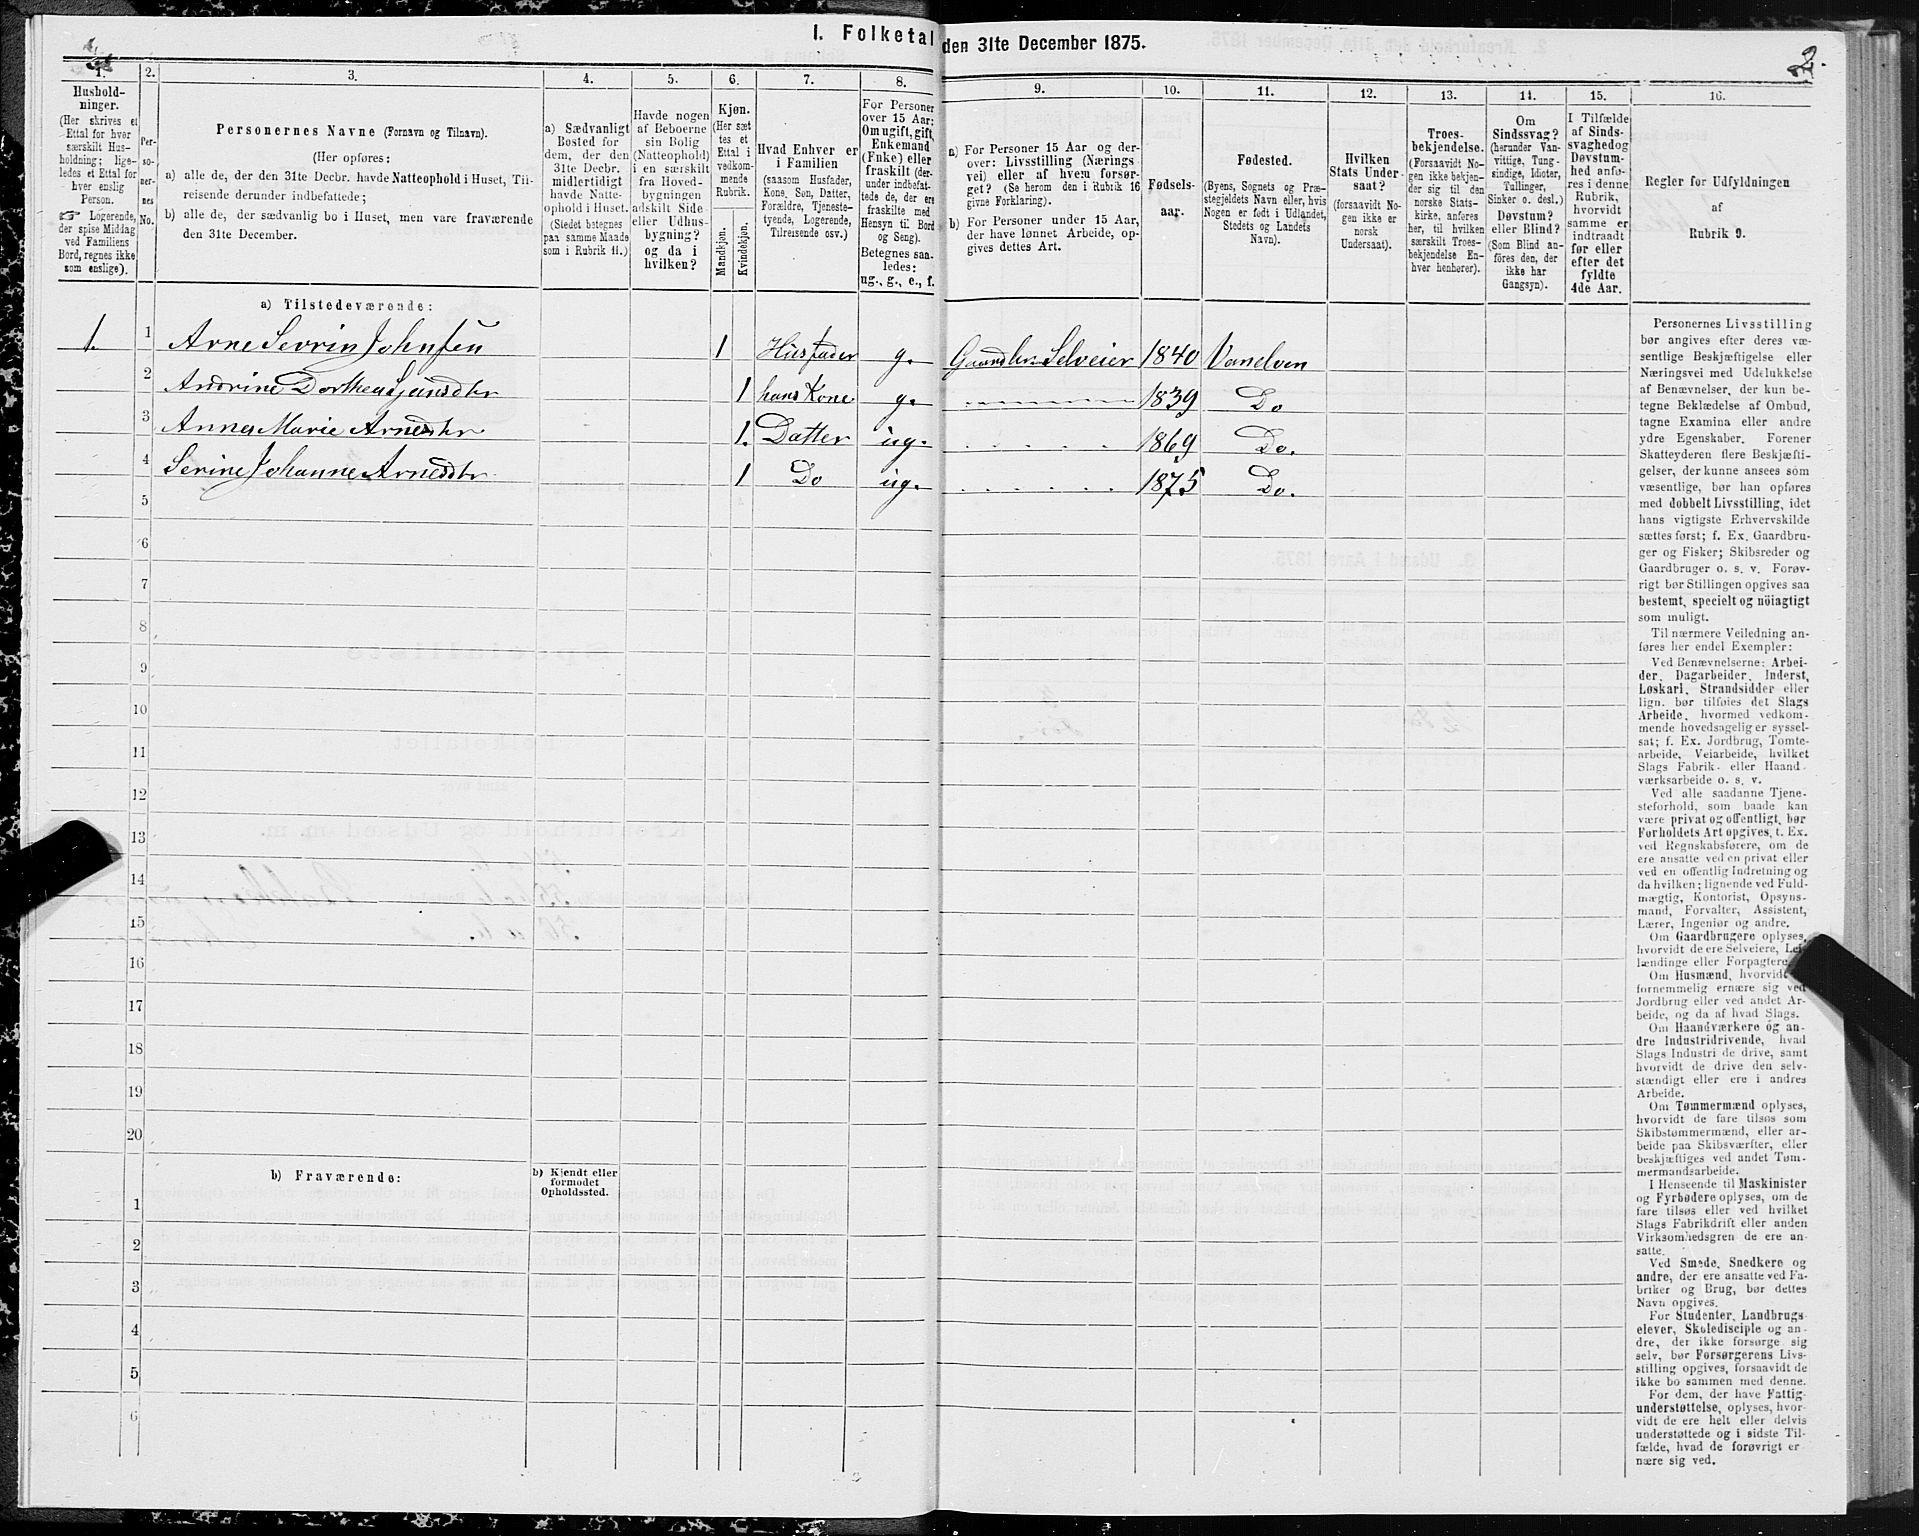 I. Folketal den 31te December 1875.
2.
1.
2.
3.
4.
5.
6.
7.
8.
9.
10.
11.
12.
13.
14.
15.
16.
Hushold-
ninger.
(Her skrives et
Ettal for hver
særskilt Hus-
holdning; lige-
ledes et Ettal for
hver enslig
Person.
☞ Logerende,
der spise Middag
ved Familiens
Bord, regnes ikke
som enslige).
Per-
so-
ner-
nes
No.
Personernes Navne (Fornavn og Tilnavn).
(Her opføres:
a) alle de, der den 31te Decbr. havde Natteophold i Huset, Til-
reisende derunder indbefattede;
b) alle de, der sædvanlig bo i Huset, men vare fraværende
den 31te December.
a) Sædvanligt
Bosted for
dem, der den
31te Decbr.
midlertidigt
havde Natte-
ophold i Huset.
(Stedet betegnes
paa samme Maade
som i Rubrik 11.)
Havde nogen
af Beboerne
sin Bolig
(Natteophold)
i en særskilt
fra Hoved-
bygningen
adskilt Side-
eller Udhus-
bygning?
og da i
hvilken?
Kjøn.
(Her sæt-
tes et
Ettal i
vedkom-
mende
Rubrik.
Mandkjøn.
Kvindekjøn.
Hvad Enhver er
i Familien
(saasom Husfader,
Kone, Søn, Datter,
Forældre, Tjeneste-
tyende, Logerende,
Tilreisende osv.)
For Personer
over 15 Aar:
Om ugift, gift,
Enkemand
(Enke) eller
fraskilt (der-
under indbefat-
tede de, der ere
fraskilte med
Hensyn til Bord
og Seng).
Betegnes saa-
ledes:
ug., g., e., f.
a) For Personer 15 Aar og der-
over: Livsstilling (Nærings
vei) eller af hvem forsør-
get? (Se herom den i Rubrik 16
givne Forklaring).
b) For Personer under 15 Aar,
der have lønnet Arbeide, op-
gives dettes Art.
Fødsels-
aar.
Fødested.
(Byens, Sognets og Præ-
stegjeldets Navn eller, hvis
Nogen er født i Udlandet,
Stedets og Landets
Navn).
Hvilken
Stats Under-
saat?
(forsaavidt No-
gen ikke er
norsk
Undersaat).
Troes-
bekjendelse.
(Forsaavidt No-
gen ikke bekjen-
der sig til den
norske Stats-
kirke, anføres
her, til hvilken
særskilt Troes-
bekjendelse En-
hver henhører).
Om
Sindssvag?
(herunder Van-
vittige, Tung-
sindige, Idioter,
Tullinger,
Sinker o. desl.)
Døvstum?
eller Blind?
(Som Blind an-
føres den, der
ikke har
Gangsyn).
I Tilfælde
af Sinds-
svaghed og
Døvstum-
hed anfø-
res i denne
Rubrik,
hvorvidt
samme er
indtraadt
før eller
efter det
fyldte
4de Aar.
Regler for Udfyldningen
af
Rubrik 9.
a) Tilstedeværende:
1. 1 Arne Sevrin Johnsen 1 Husfader g. Gaardbr. Selveier 1840 Vanelven
2 Andrine Dorthea Jonsdtr 1 hans Kone g. 1839 Do
3 Anne Marie Arnesdtr 1. Datter ug. 1869 Do.
4 Serine Johanne Arnesdtr 1 Do ug. 1875 Do.
5
6
7
8
9
10
11
12
13
14
15
16
17
18
19
20
b) Fraværende:
b) Kjendt eller
formodet
Opholdssted.
1
2
3
4
5
6
Personernes Livsstilling
bør angives efter deres væ-
sentlige Beskjæftigelse eller
Næringsvei med Udelukkelse
af Benævnelser, der kun be-
tegne Beklædelse af Ombud,
tagne Examina eller andre
ydre Egenskaber. Forener
Skatteyderen flere Beskjæfti-
gelser, der kunne ansees som
væsentlige, bør han opføres
med dobbelt Livsstilling, idet
hans vigtigste Erhvervskilde
sættes først; f. Ex. Gaardbru-
ger og Fisker; Skibsreder og
Gaardbruger o. s. v. Forøv-
rigt bør Stillingen opgives saa
bestemt, specielt og nöiagtigt
som muligt.
Til nærmere Veiledning an-
føres her endel Exempler:
Ved Benævnelserne: Arbei-
der, Dagarbeider, Inderst,
Løskarl, Strandsidder eller
lign. bør tilføies det Slags
Arbeide, hvormed vedkom-
mende hovedsagelig er syssel-
sat; f. Ex. Jordbrug, Tomte-
arbeide, Veiarbeide, hvilket
Slags Fabrik- eller Haand-
værksarbeide o. s. v.
Ved alle saadanne Tjene-
steforhold, som baade kan
være privat og offentligt, bør
Forholdets Art opgives, t. Ex.
ved Regnskabsførere, om de
ere ansatte ved en privat eller
ved en offentlig Indretning og
da hvilken; lignende ved Fuld-
mægtig, Kontorist, Opsyns-
mand, Forvalter, Assistent,
Lærer, Ingeniør og andre.
Om Gaardbrugere oplyses,
hvorvidt de ere Selveiere, Lei-
lændinge eller Forpagtere.
Om Husmænd, hvorvidt
fornemmelig ernære sig ved
Jordbrug eller ved andet Ar-
beide, og da af hvad Slags.
Om Haandværkere og an-
dre Industridrivende, hvad
Slags Industri de drive, samt
hvorvidt de drive den selv-
stændigt eller ere i andres
Arbeide.
Om Tømmermænd oplyses,
hvorvidt de fare tilsøs som
Skibstømmermænd, eller ar-
beide paa Skibsværfter, eller
beskjæftiges ved andet Tøm-
mermandsarbeide.
I Henseende til Maskinister
og Fyrbødere oplyses, om de
fare tilsøs eller ved hvilket
Slags Fabrikdrift eller anden
Virksomhedsgren de ere an-
satte.
Ved Smede, Snedkere og
andre, der ere ansatte ved Fa-
briker og Brug, bør dettes
Navn opgives.
For Studenter, Landbrugs-
elever, Skoledisciple og an-
dre, der ikke forsørge sig
selv, bør Forsørgerens Livs-
stilling opgives, forsaavidt de
ikke bo sammen med denne.
For dem, der have Fattig-
understøttelse, oplyses, hvor-
vidt de ere helt eller delvis
understøttede og i sidste Til-
fælde, hvad de forøvrigt er-
nære sig ved.